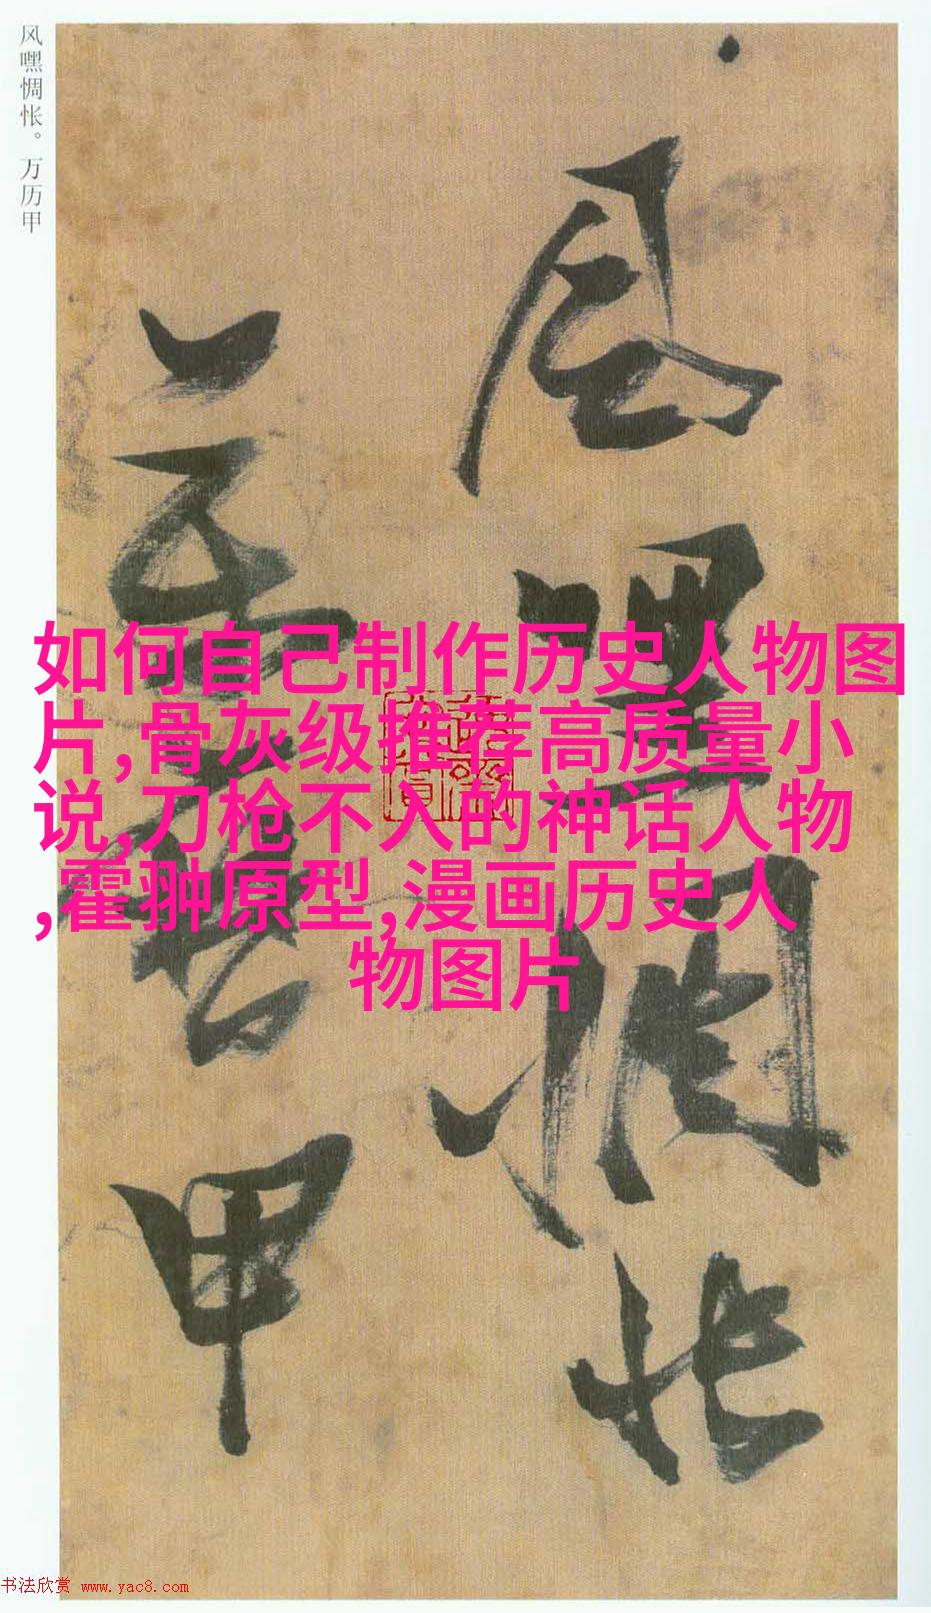 风嘿惆怅。万历甲
风嘿惆怅
万历甲
如何自己制作历史人物图
片,骨灰级推荐高质量小
说,刀枪不入的神话人物
,霍翀原型,漫画历史人
物图片
书法欣赏 www.yac8.com